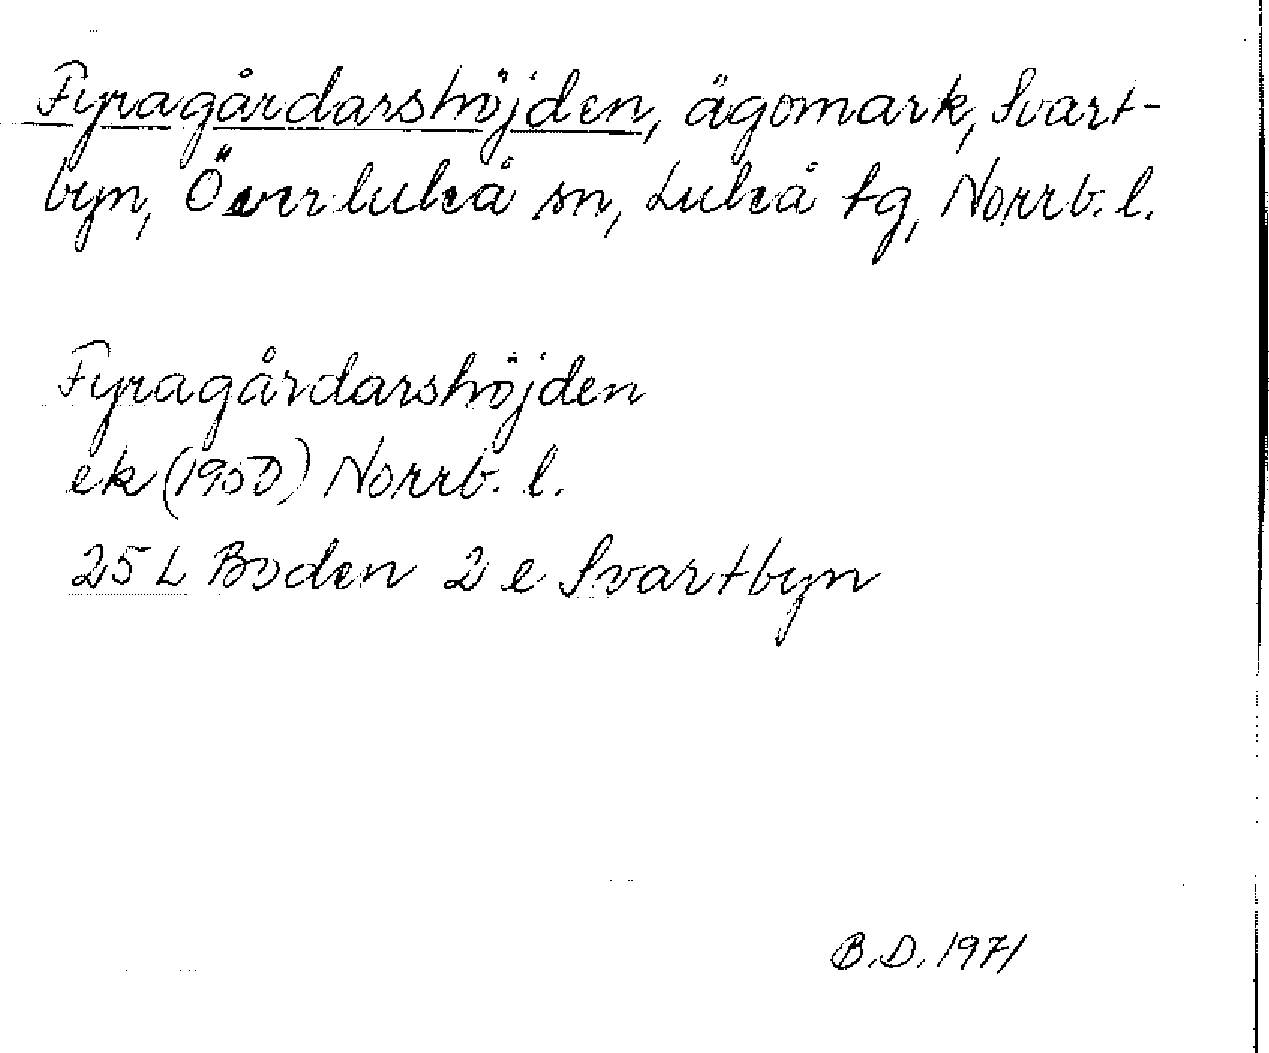 Fyragårdarshöjden, ägomark, Svart-
byn, Överluleå sn, Luleå tg, Norrb. l.
Fyragårdarshöjden
ek (1950) Norrb. l.
25 L Boden 2 e Svartbyn
B.D. 1971